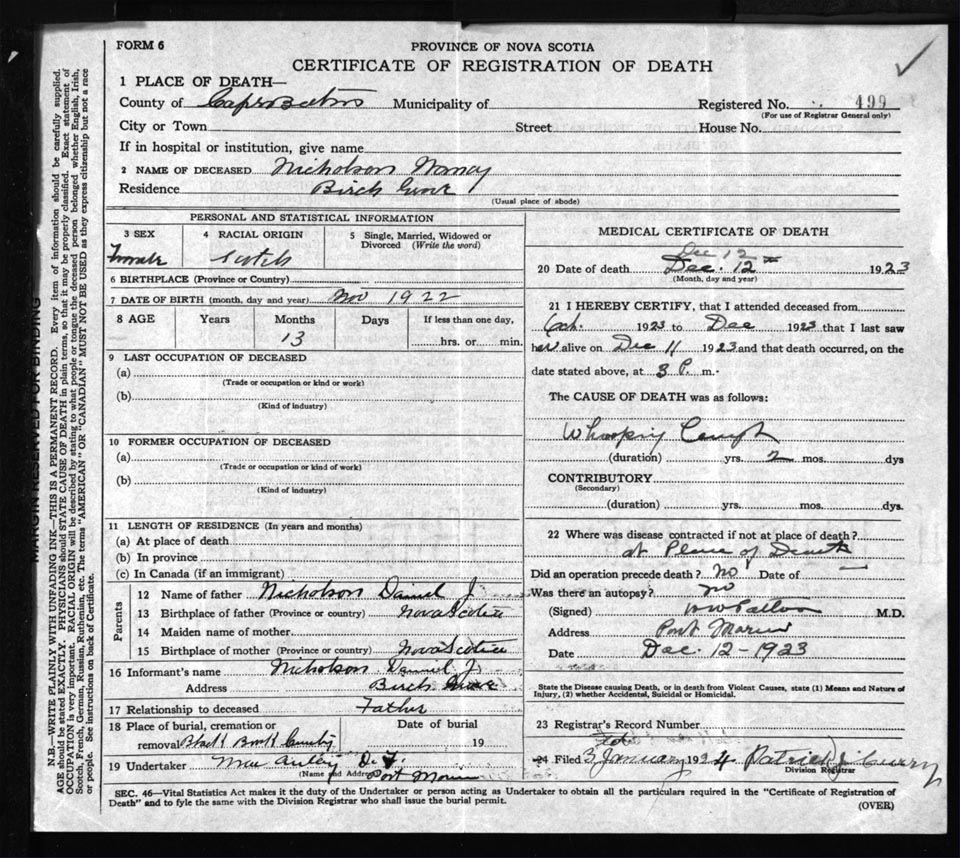 FORM 6
PROVINCE OF NOVA SCOTIA
CERTIFICATE OF REGISTRATION OF DEATH
1 PLACE OF DEATH—
County of Cape Breton Municipality of Registered No. 499
(For use of Registrar General only)
City or Town Street House No.
If in hospital or institution, give name
2 NAME OF DECEASED Nicholson Nancy
Residence Birch Grove
(Usual place of abode)
PERSONAL AND STATISTICAL INFORMATION
3 SEX 4 RACIAL ORIGIN 5 Single, Married, Widowed or Divorced (Write the word)
Female Scotch
6 BIRTHPLACE (Province or Country)
7 DATE OF BIRTH (month, day and year) Nov 1922
8 AGE Years Months Days If less than one day,
13 hrs. or min.
9 LAST OCCUPATION OF DECEASED
(a)
(Trade or occupation or kind or work)
(b)
(Kind of industry)
10 FORMER OCCUPATION OF DECEASED
(a)
(Trade or occupation or kind or work)
(b)
(Kind of industry)
11 LENGTH OF RESIDENCE (In years and months)
(a) At place of death
(b) In province
(c) In Canada (if an immigrant)
Parents
12 Name of father Nicholson Daniel J.
13 Birthplace of father (Province or country) Nova Scotia
14 Maiden name of mother
15 Birthplace of mother (Province or country) Nova Scotia
16 Informant's name Nicholson Daniel J.
Address Birch Grove
17 Relationship to deceased Father
18 Place of burial, cremation or Date of burial
removal Black Brook 19
19 Undertaker D. J.
(Name and Address) Port Morien
MEDICAL CERTIFICATE OF DEATH
Dec 12
20 Date of death Dec. 12 1923
(Month, day and year)
21 I HEREBY CERTIFY, that I attended deceased from
Oct. 1923 to Dec 1923 that I last saw
her alive on Dec 11 1923 and that death occurred, on the
date stated above, at 3 P. m.
The CAUSE OF DEATH was as follows:
Whooping Cough
(duration) yrs. 2 mos. dys
CONTRIBUTORY
(Secondary)
(duration) yrs. mos. dys.
22 Where was disease contracted if not at place of death?
at Place of Death
Did an operation precede death? no Date of
Was there an autopsy? no
(Signed) M.D.
Address Port Morien
Date Dec. 12-1923
State the Disease causing Death, or in death from Violent Causes, state (1) Means and Nature of
Injury, (2) whether Accidental, Suicidal or Homicidal.
23 Registrar's Record Number
24 Filed 3 January 1924 Patrick J. Curry
Division Registrar
SEC. 46—Vital Statistics Act makes it the duty of the Undertaker or person acting as Undertaker to obtain all the particulars required in the "Certificate of Registration of
Death" and to fyle the same with the Division Registrar who shall issue the burial permit.
(OVER)
MARGIN RESERVED FOR BINDING
N.B.—WRITE PLAINLY WITH UNFADING INK—THIS IS A PERMANENT RECORD. Every item of information should be carefully supplied.
AGE should be stated EXACTLY. PHYSICIANS should STATE CAUSE OF DEATH in plain terms, so that it may be properly classified. Exact statement of
OCCUPATION is very important. RACIAL ORIGIN will be described by stating to what people or tongue the deceased person belonged whether English, Irish,
Scotch, French, German, Russian, Ruthenian, etc. The terms "AMERICAN" OR "CANADIAN" MUST NOT BE USED as they express citizenship but not a race
or people. See instructions on back of Certificate.